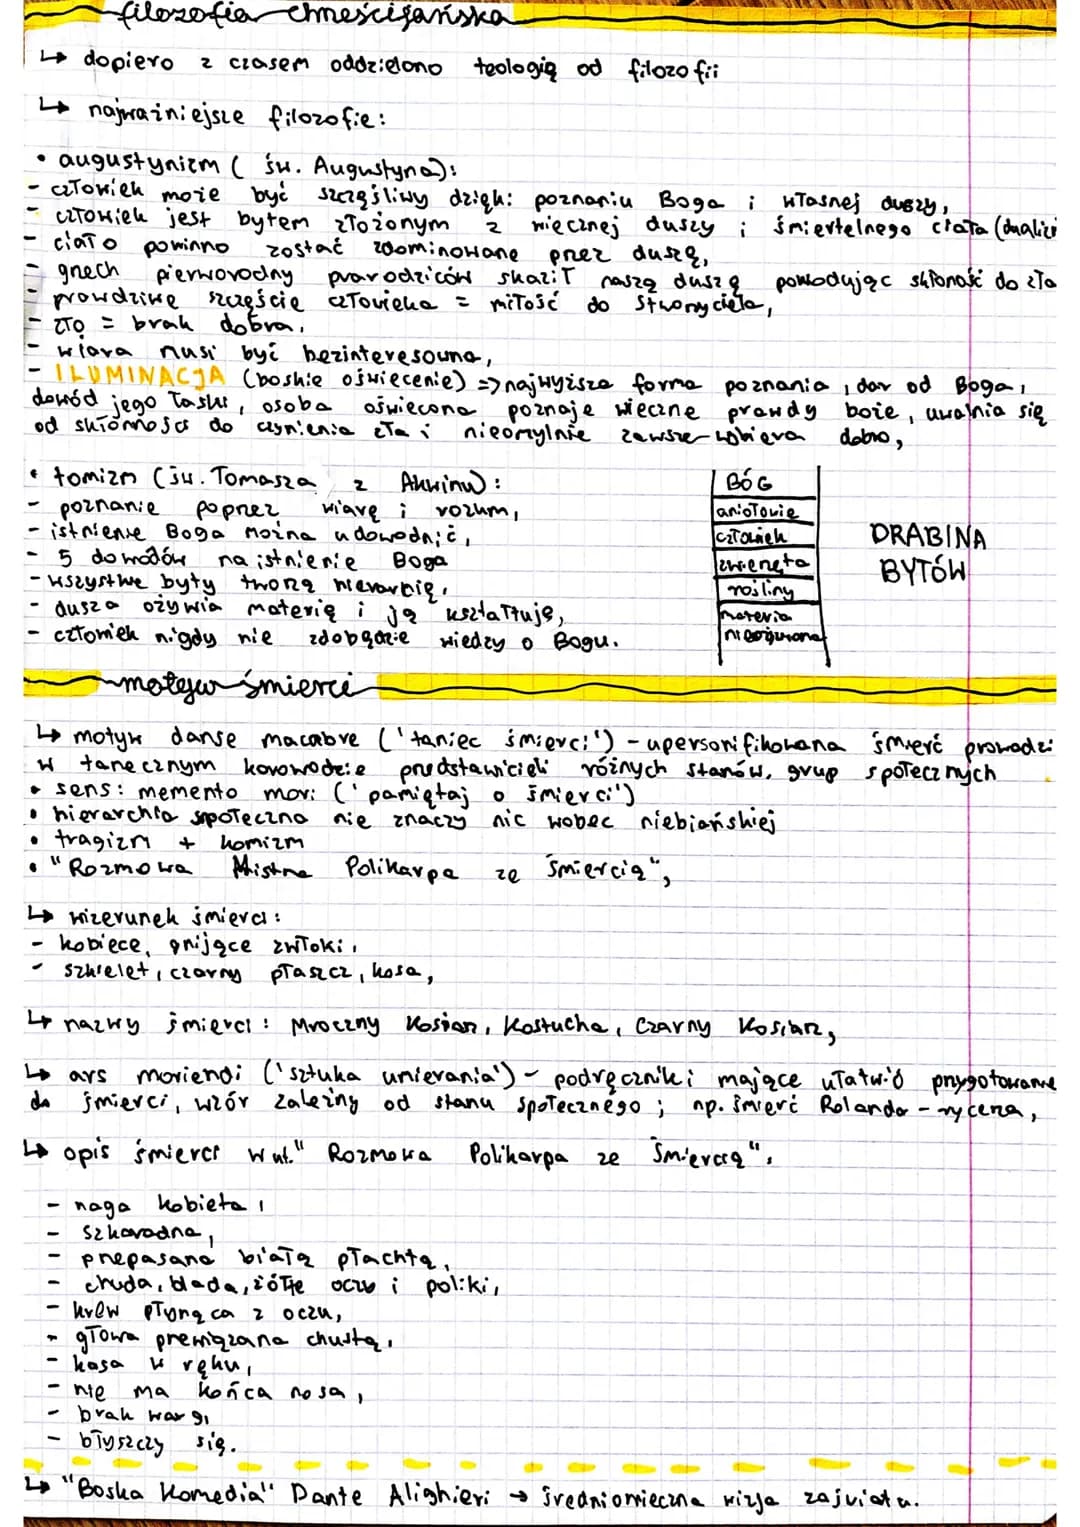 filozofia chrześcijańska
↳ dopiero z czasem oddzielono teologię od filozofii
↳ najważniejsze filozofie:
• augustynizm (św. Augustyna):
- człowiek może być szczęśliwy dzięki poznaniu Boga i własnej duszy,
- człowiek jest bytem złożonym z wiecznej duszy i śmiertelnego ciała (dualizm
- ciało powinno zostać zdominowane przez duszę,
- grzech pierworodny prarodziców skaził naszą duszę powodując skłoność do zła
- prawdziwe szczęście człowieka = miłość do Stworzyciela,
- zło = brak dobra,
- wiara musi być bezinteresowna,
- ILUMINACJA (boskie oświecenie) => najwyższa forma poznania, dar od Boga,
dowód jego łaski, osoba oświecona poznaje wieczne prawdy boże, uwalnia się
od skłonności do czynienia zła i nieomylnie zawsze wybiera dobro,
• tomizm (św. Tomasza z Akwinu):
- poznanie poprzez wiarę i rozum,
- istnienie Boga można udowodnić,
- 5 dowodów na istnienie Boga
- wszystkie byty tworzą hierarchię,
- dusza ożywia materię i ją kształtuje,
- człowiek nigdy nie zdobędzie wiedzy o Bogu.
BÓG
aniołowie
człowiek
zwierzęta
rośliny
materia
nieożywiona
DRABINA
BYTÓW
motyw śmierci
↳ motyw danse macabre ('taniec śmierci') - upersonifikowana śmierć prowadzi
w tanecznym korowodzie przedstawicieli różnych stanów, grup społecznych
• sens: memento mori ('pamiętaj o śmierci')
• hierarchia społeczna nie znaczy nic wobec niebiańskiej
• tragizm + komizm
• "Rozmowa Mistrza Polikarpa ze Śmiercią",
↳ wizerunek śmierci:
- kobiece, gnijące zwłoki,
- szkielet, czarny płaszcz, kosa,
↳ nazwy śmierci: Mroczny Kosiarz, Kostucha, Czarny Kosiarz,
↳ ars moriendi ('sztuka umierania') - podręczniki mające ułatwić przygotowanie
do śmierci, wzór zależny od stanu społecznego; np. śmierć Rolanda - rycerza,
↳ opis śmierci w ut. "Rozmowa Polikarpa ze Śmiercią",
- naga kobieta,
- szkaradna,
- przepasana białą płachtą,
- chuda, blada, żółte oczy i poliki,
- krew płynąca z oczu,
- głowa przewiązana chustą,
- kosa w ręku,
- nie ma końca nosa,
- brak wargi
- błyszczy się.
↳ "Boska Komedia" Dante Alighieri → średniowieczna wizja zaświatu.